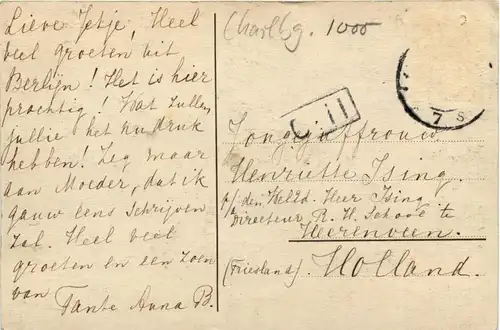 Lieve Jetje, Heel
veel groeten uit
Berlijn! Het is hier
prachtig! Wat zullen
jullie het nu druk
hebben! Zeg maar
aan Moeder, dat ik
gauw eens schrijven
zal. Heel veel
groeten en een zoen
van Tante Anna B.
Charlbg. 1000
7 S
Jongejuffrouw
Henriëtte Ising
p/a den WelEd. Heer Ising
Directeur R. H. School te
Heerenveen
(Friesland). Holland.